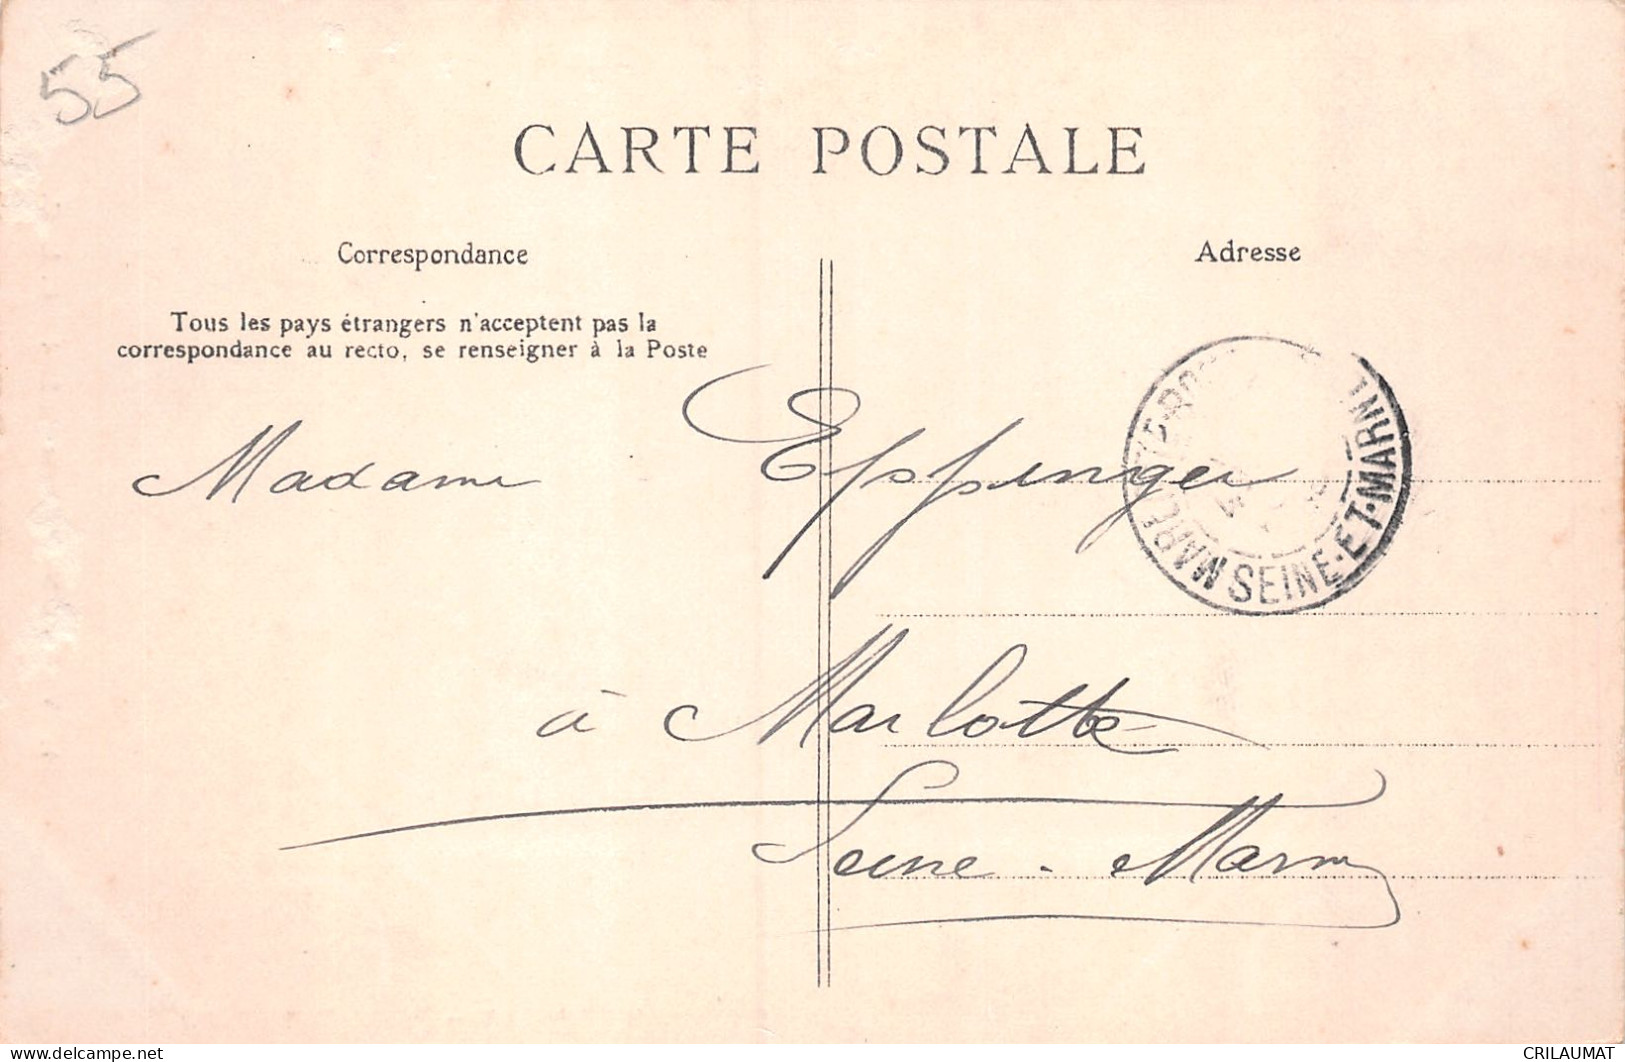 55
CARTE POSTALE
Correspondance
Adresse
Tous les pays étrangers n'acceptent pas la
correspondance au recto, se renseigner à la Poste
Madame Eppinger
à Marlotte
Seine - Marne
SEINE-ET-MARNE
delcampe.net
CRILAUMAT